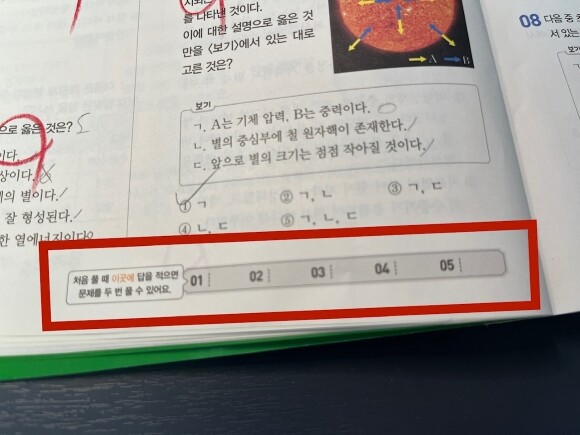 를 나타낸 것이다.
이에 대한 설명으로 옳은 것
만을 <보기>에서 있는 대로
고른 것은?
A B
08 다음 중
서 있는
보기
ㄱ. A는 기체 압력, B는 중력이다.
ㄴ. 별의 중심부에 철 원자핵이 존재한다.
ㄷ. 앞으로 별의 크기는 점점 작아질 것이다.
① ㄱ ② ㄱ, ㄴ ③ ㄱ, ㄷ
④ ㄴ, ㄷ ⑤ ㄱ, ㄴ, ㄷ
으로 옳은 것은?
이다.
상이다.
의 별이다.
잘 형성된다.
한 열에너지이다.
처음 풀 때 이곳에 답을 적으면
문제를 두 번 풀 수 있어요.
01 02 03 04 05